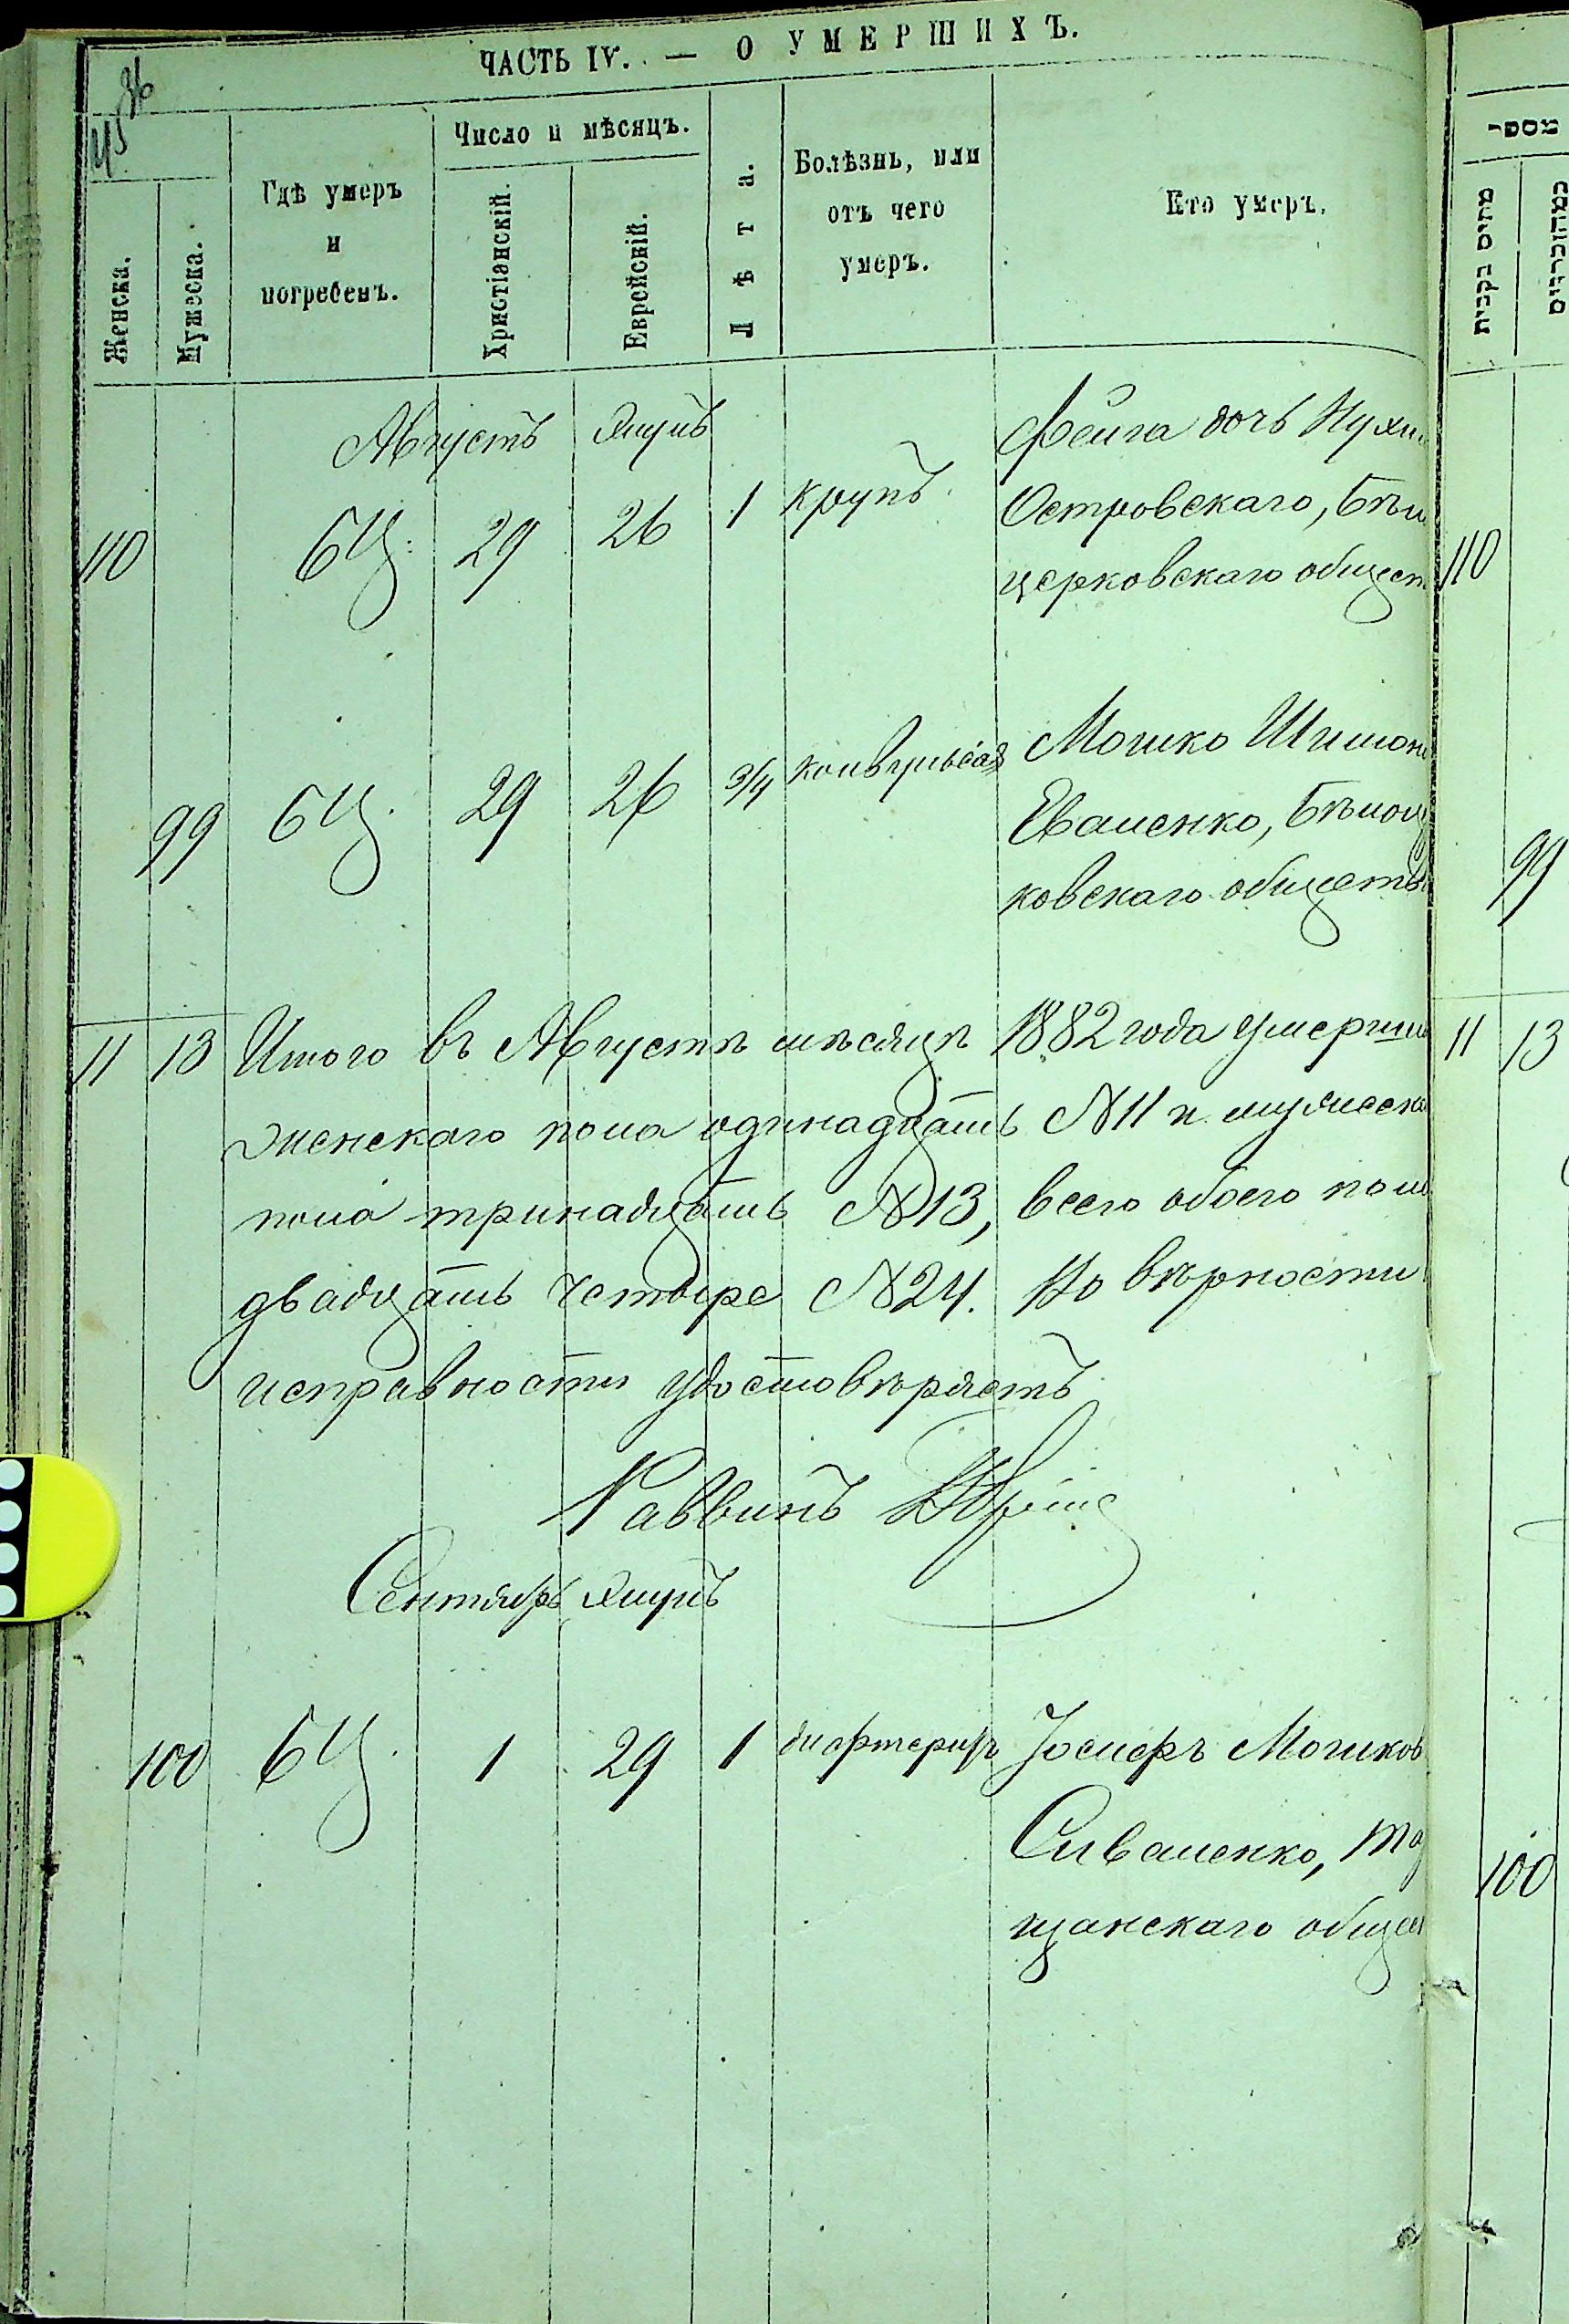 ЧАСТЬ IV. — О УМЕРШИХЪ.
86
45
Женска.
Мужеска.
Гдѣ умеръ
и
погребенъ.
Число и мѣсяцъ.
Христіанскій.
Еврейскій.
Лѣта.
Болѣзнь, или
отъ чего
умеръ.
Кто умеръ.
Августъ Элулъ
110 БЦ. 29 26 1 крупъ. Фейга дочь Нухи
Островскаго, Бѣл
церковскаго общест
99 БЦ. 29 26 3/4 конвульсія Мошко Шимон
Евашенко, Бѣлоц
ковскаго обществ
11 13 Итого въ Августѣ мѣсяцѣ 1882 года умерши
женскаго пола одинадцать №11 и мужеска
пола тринадцать №13, всего обоего пола
двадцать четыре №24. Но вѣрности
исправности удостовѣряетъ
Раввинъ
Сентябрь Элулъ
100 БЦ. 1 29 1 дифтеритъ Іосифъ Мошков
Сивашенко, Та
щанскаго общес
מספר
מתים בקבית
כמהזכרים
110
99
11 13
100